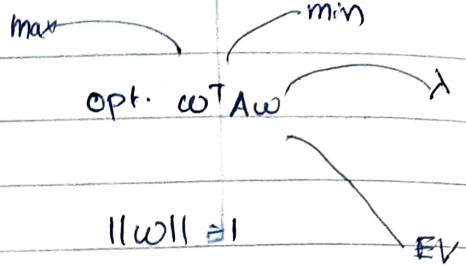 max
min
opt. ωᵀAω
λ
||ω|| = 1
EV